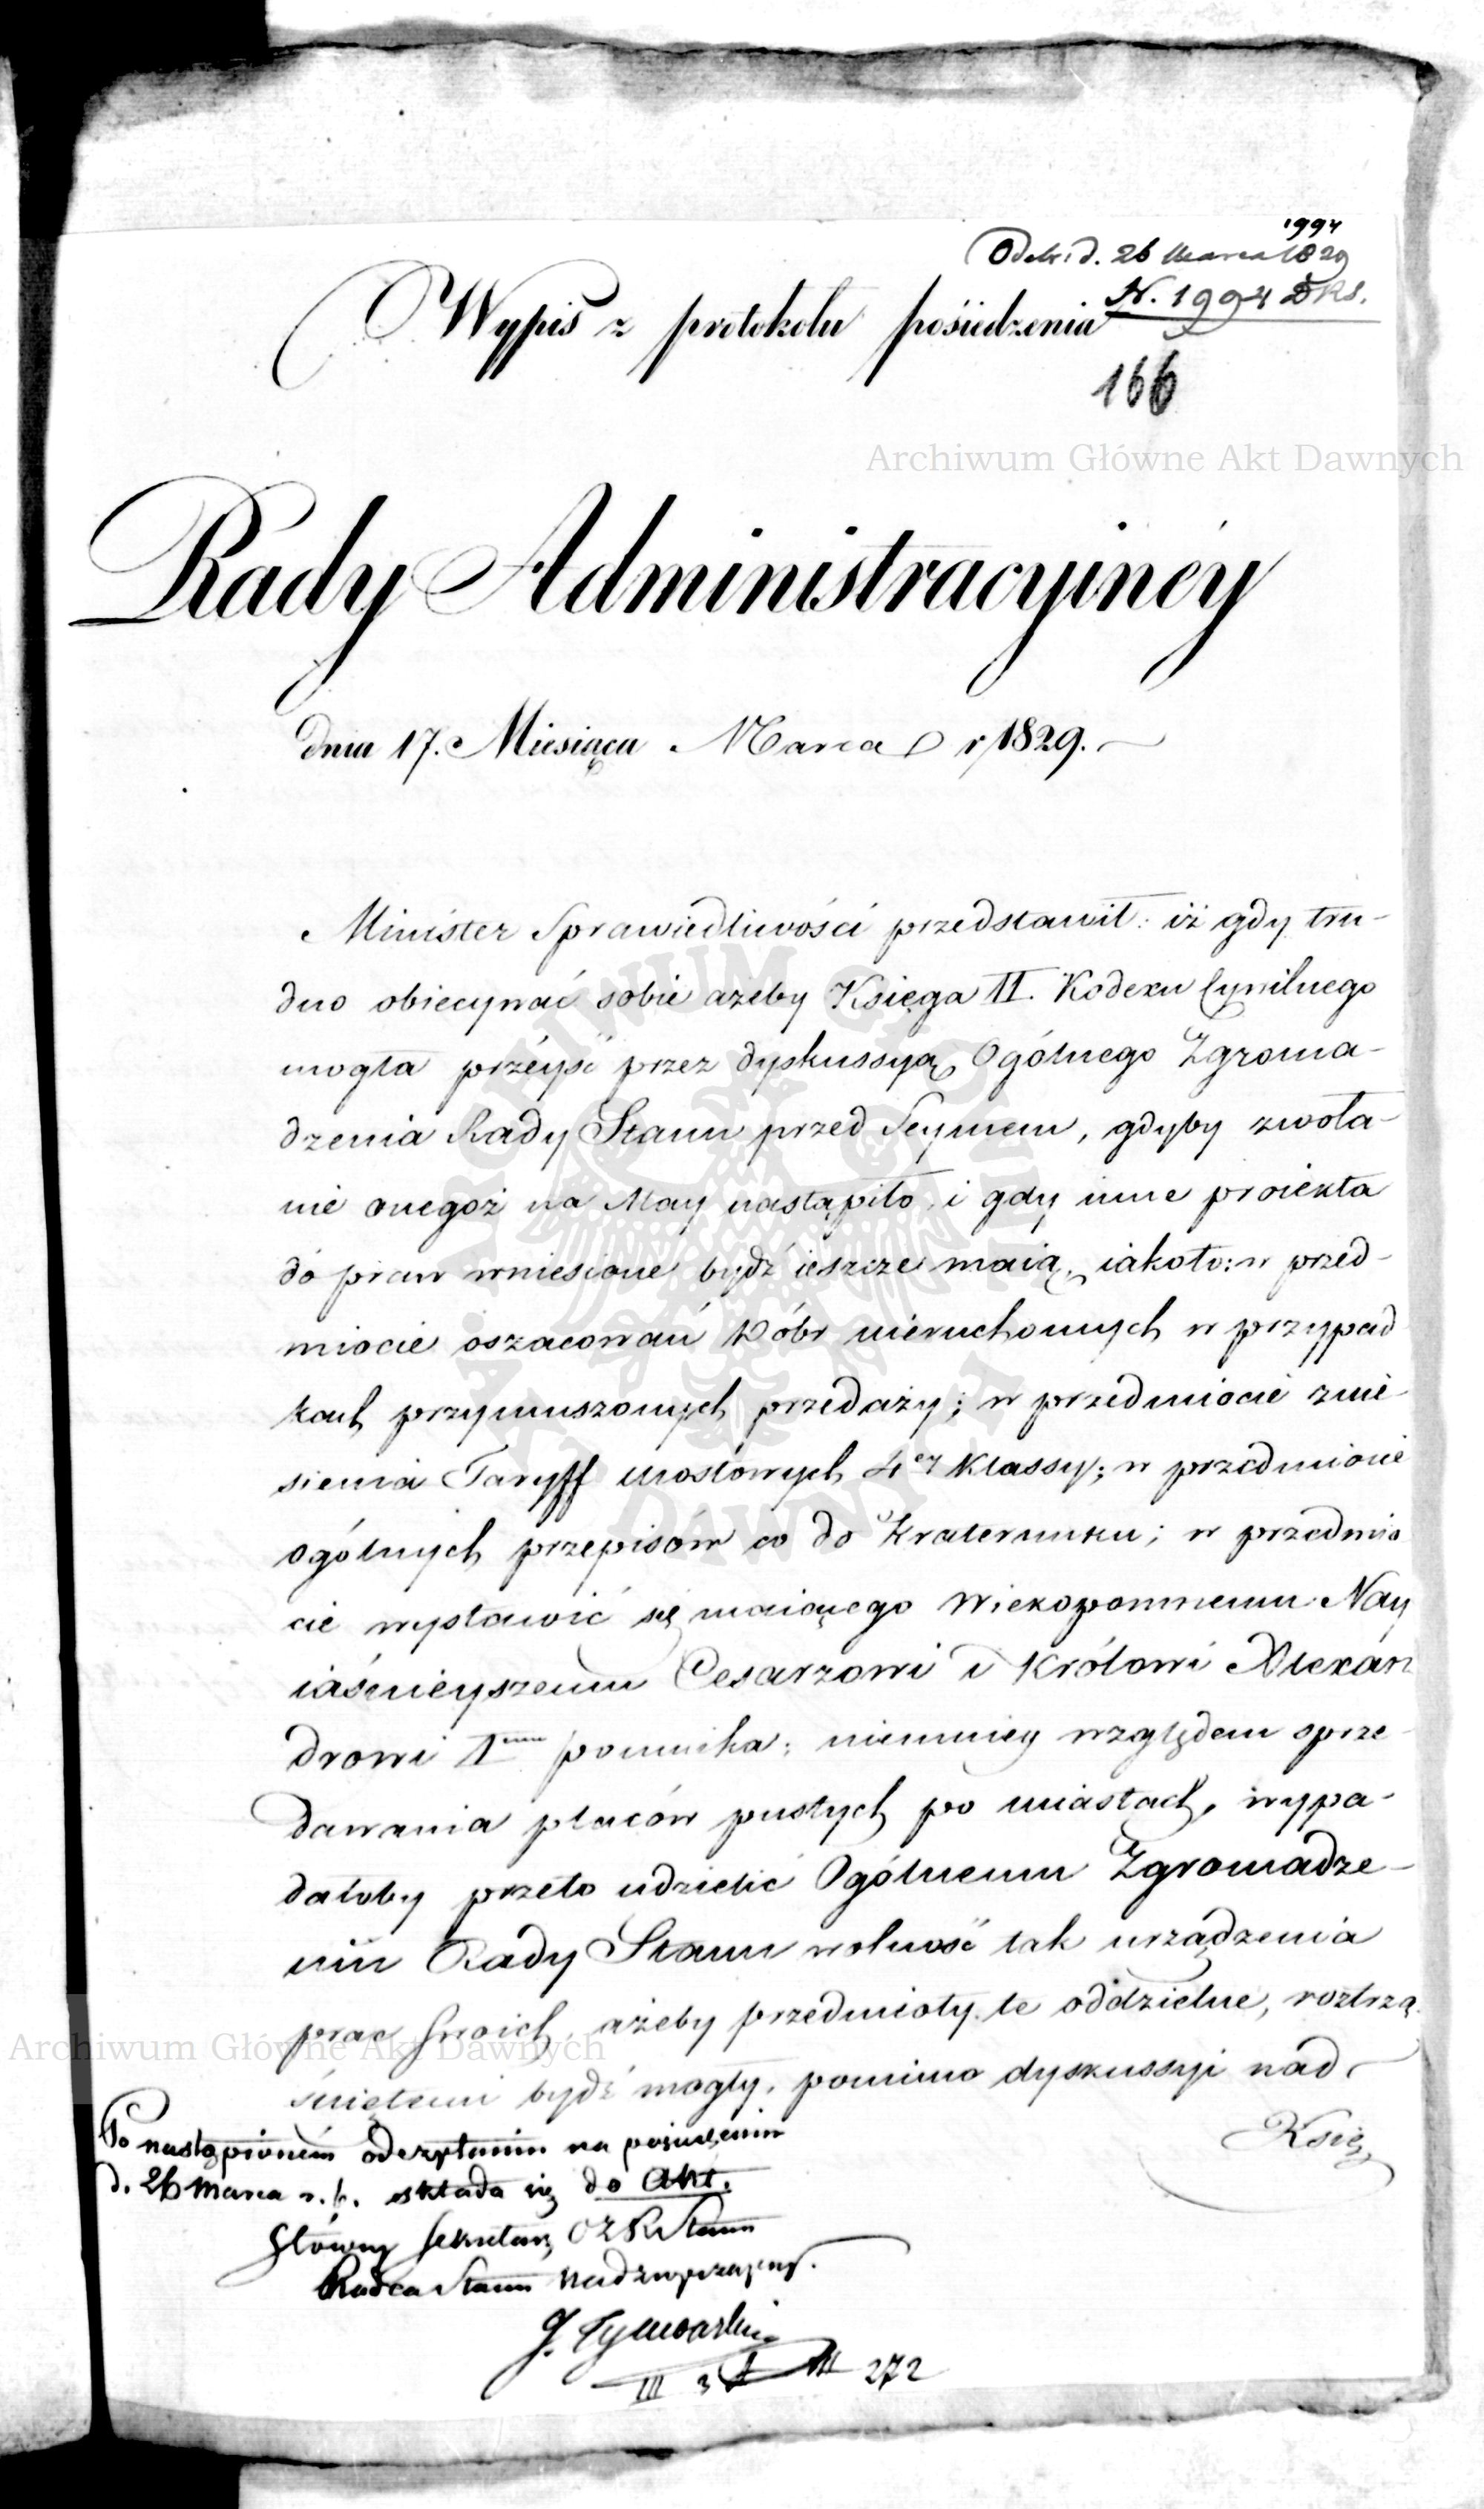 1994
Odebr. d. 26 Marca 1829
N. 1994 Dks.
Wypis z protokołu posiedzenia
166
Archiwum Główne Akt Dawnych
Rady Administracyinéy
dnia 17. Miesiąca Marca r 1829.
Minister Sprawiedliwości przedstawił: iż gdy tru-
dno obiecywać sobie ażeby Księga II. Kodexu Cywilnego
mogła przéyść przez dyskussyą Ogólnego Zgroma-
dzenia Rady Stanu przed Seymem, gdyby zwoła-
nie onegoż na May nastąpiło, i gdy inne proiekta
do praw wniesione bydź ieszcze maią, iakoto: w przed-
miocie oszacowań Dóbr nieruchomych w przypad
kach przymuszonych przedaży; w przedmiocie znie-
sienia Taryff mostowych 4ey Klassy; w przedmiocie
ogólnych przepisów co do Kwaterunku; w przedmio
cie wystawić się maiącego Wiekopomnemu Nay
iaśnieyszemu Cesarzowi i Królowi Alexan
drowi Imu pomnika; niemniey względem sprze-
dawania placów pustych po miastach, wypa-
dałoby przeto udzielić Ogólnemu Zgromadze-
niu Rady Stanu wolność tak urządzenia
prac swoich, ażeby przedmioty te oddzielne, roztrzą-
śnionemi bydź mogły, pomimo dyskussyi nad
Księ
Archiwum Główne Akt Dawnych
Po nastąpioném odczytaniu na posiedzeniu
d. 26 Marca r. b. składa się do Akt.
Główny Sekretarz OZR Stanu
Radca Stanu Nadzwyczayny.
J. Tymowski
III 3 272
ARCHIWUM GŁÓWNE AKT DAWNYCH